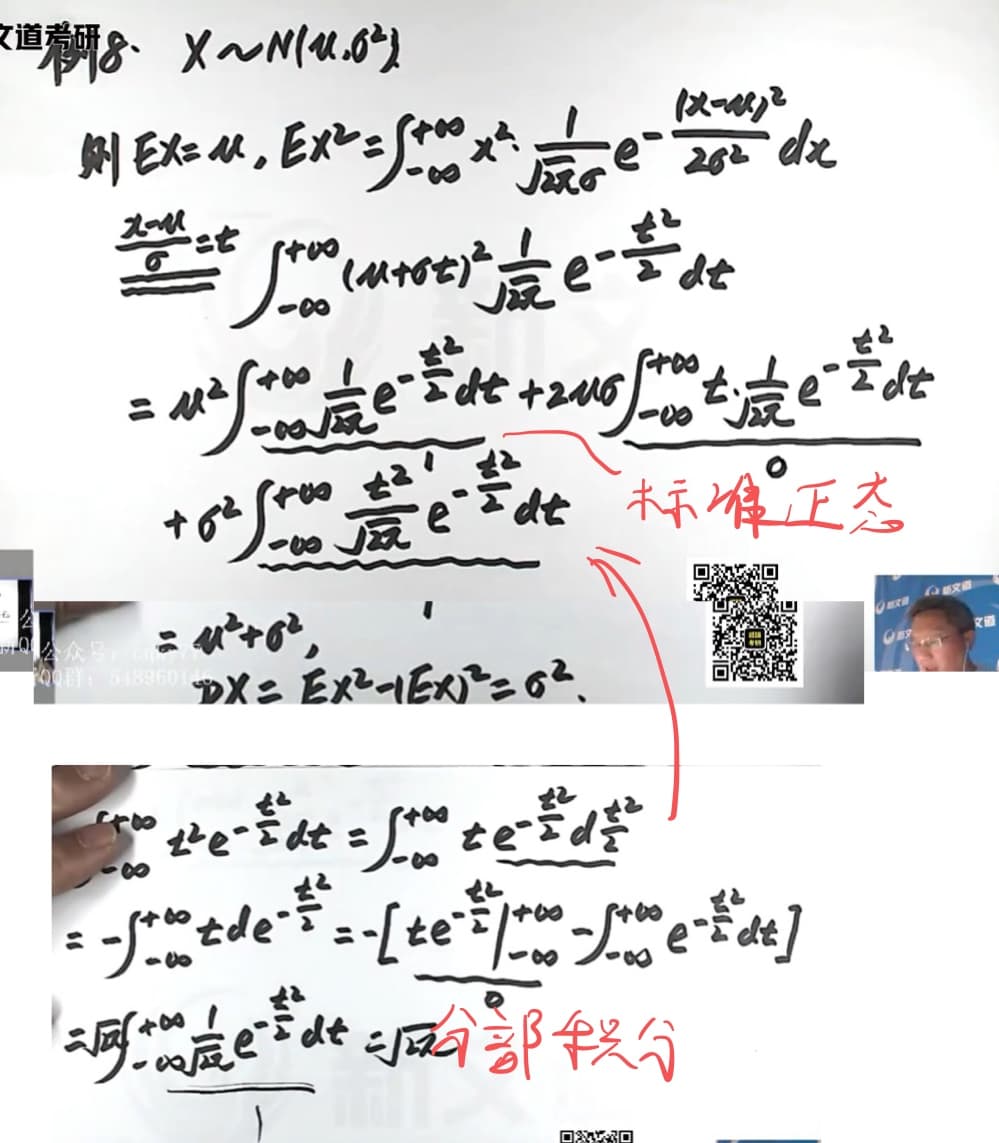 文道考研
例8. X~N(μ,σ²).
则 EX=μ, EX²=∫_{-∞}^{+∞} x²·\frac{1}{\sqrt{2π}σ} e^{-\frac{(x-μ)²}{2σ²}} dx
\frac{x-μ}{σ}=t ∫_{-∞}^{+∞} (μ+σt)² \frac{1}{\sqrt{2π}} e^{-\frac{t²}{2}} dt
= μ² ∫_{-∞}^{+∞} \frac{1}{\sqrt{2π}} e^{-\frac{t²}{2}} dt + 2μσ ∫_{-∞}^{+∞} t·\frac{1}{\sqrt{2π}} e^{-\frac{t²}{2}} dt
1 0
标准正态
+ σ² ∫_{-∞}^{+∞} \frac{t²}{\sqrt{2π}} e^{-\frac{t²}{2}} dt
1
= μ²+σ²,
公众号:
QQ群:
DX = EX²-(EX)² = σ².
∫_{-∞}^{+∞} t² e^{-\frac{t²}{2}} dt = ∫_{-∞}^{+∞} t e^{-\frac{t²}{2}} d\frac{t²}{2}
= -∫_{-∞}^{+∞} t de^{-\frac{t²}{2}} = -[te^{-\frac{t²}{2}}|_{-∞}^{+∞} - ∫_{-∞}^{+∞} e^{-\frac{t²}{2}} dt]
0
=\sqrt{2π} ∫_{-∞}^{+∞} \frac{1}{\sqrt{2π}} e^{-\frac{t²}{2}} dt = \sqrt{2π}
分部积分
1